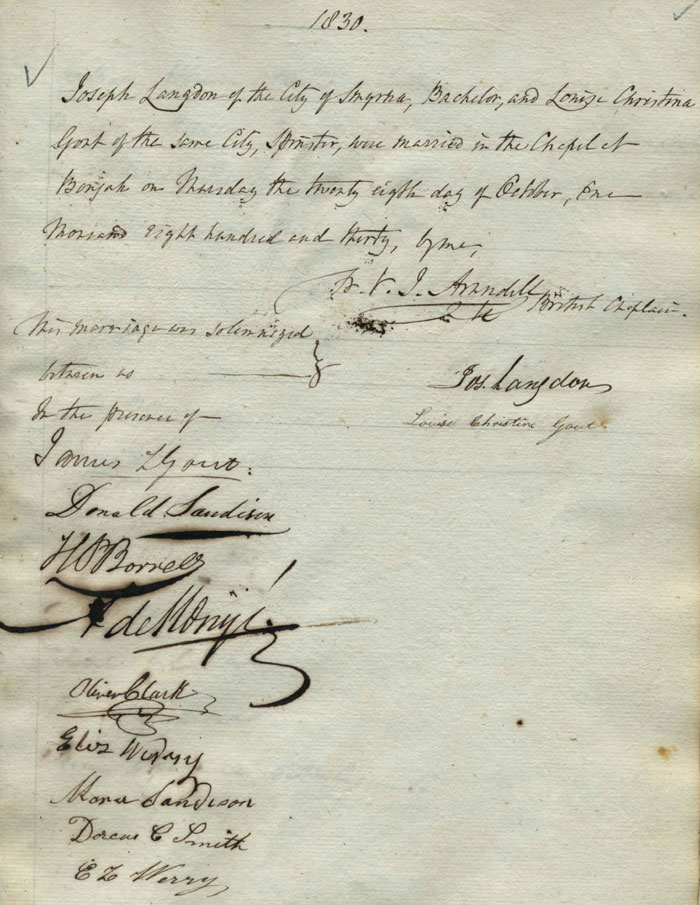 1830.
Joseph Langdon of the City of Smyrna, Bachelor, and Louise Christina
Gout of the same City, Spinster, were married in the Chapel at
Bonjah on Thursday the twenty eigth day of October, One
thousand eight hundred and thirty, by me,
F. V. J. Arundell
British Chaplain.
This marriage was solemnized
between us
Jos. Langdon
Louise Christine Gout
In the presence of
James Gout.
Donald Sandison
H P Borrell
de
Oliver Clark
Eliz Werry
Maria Sandison
Dorcas C Smith
E Z Werry